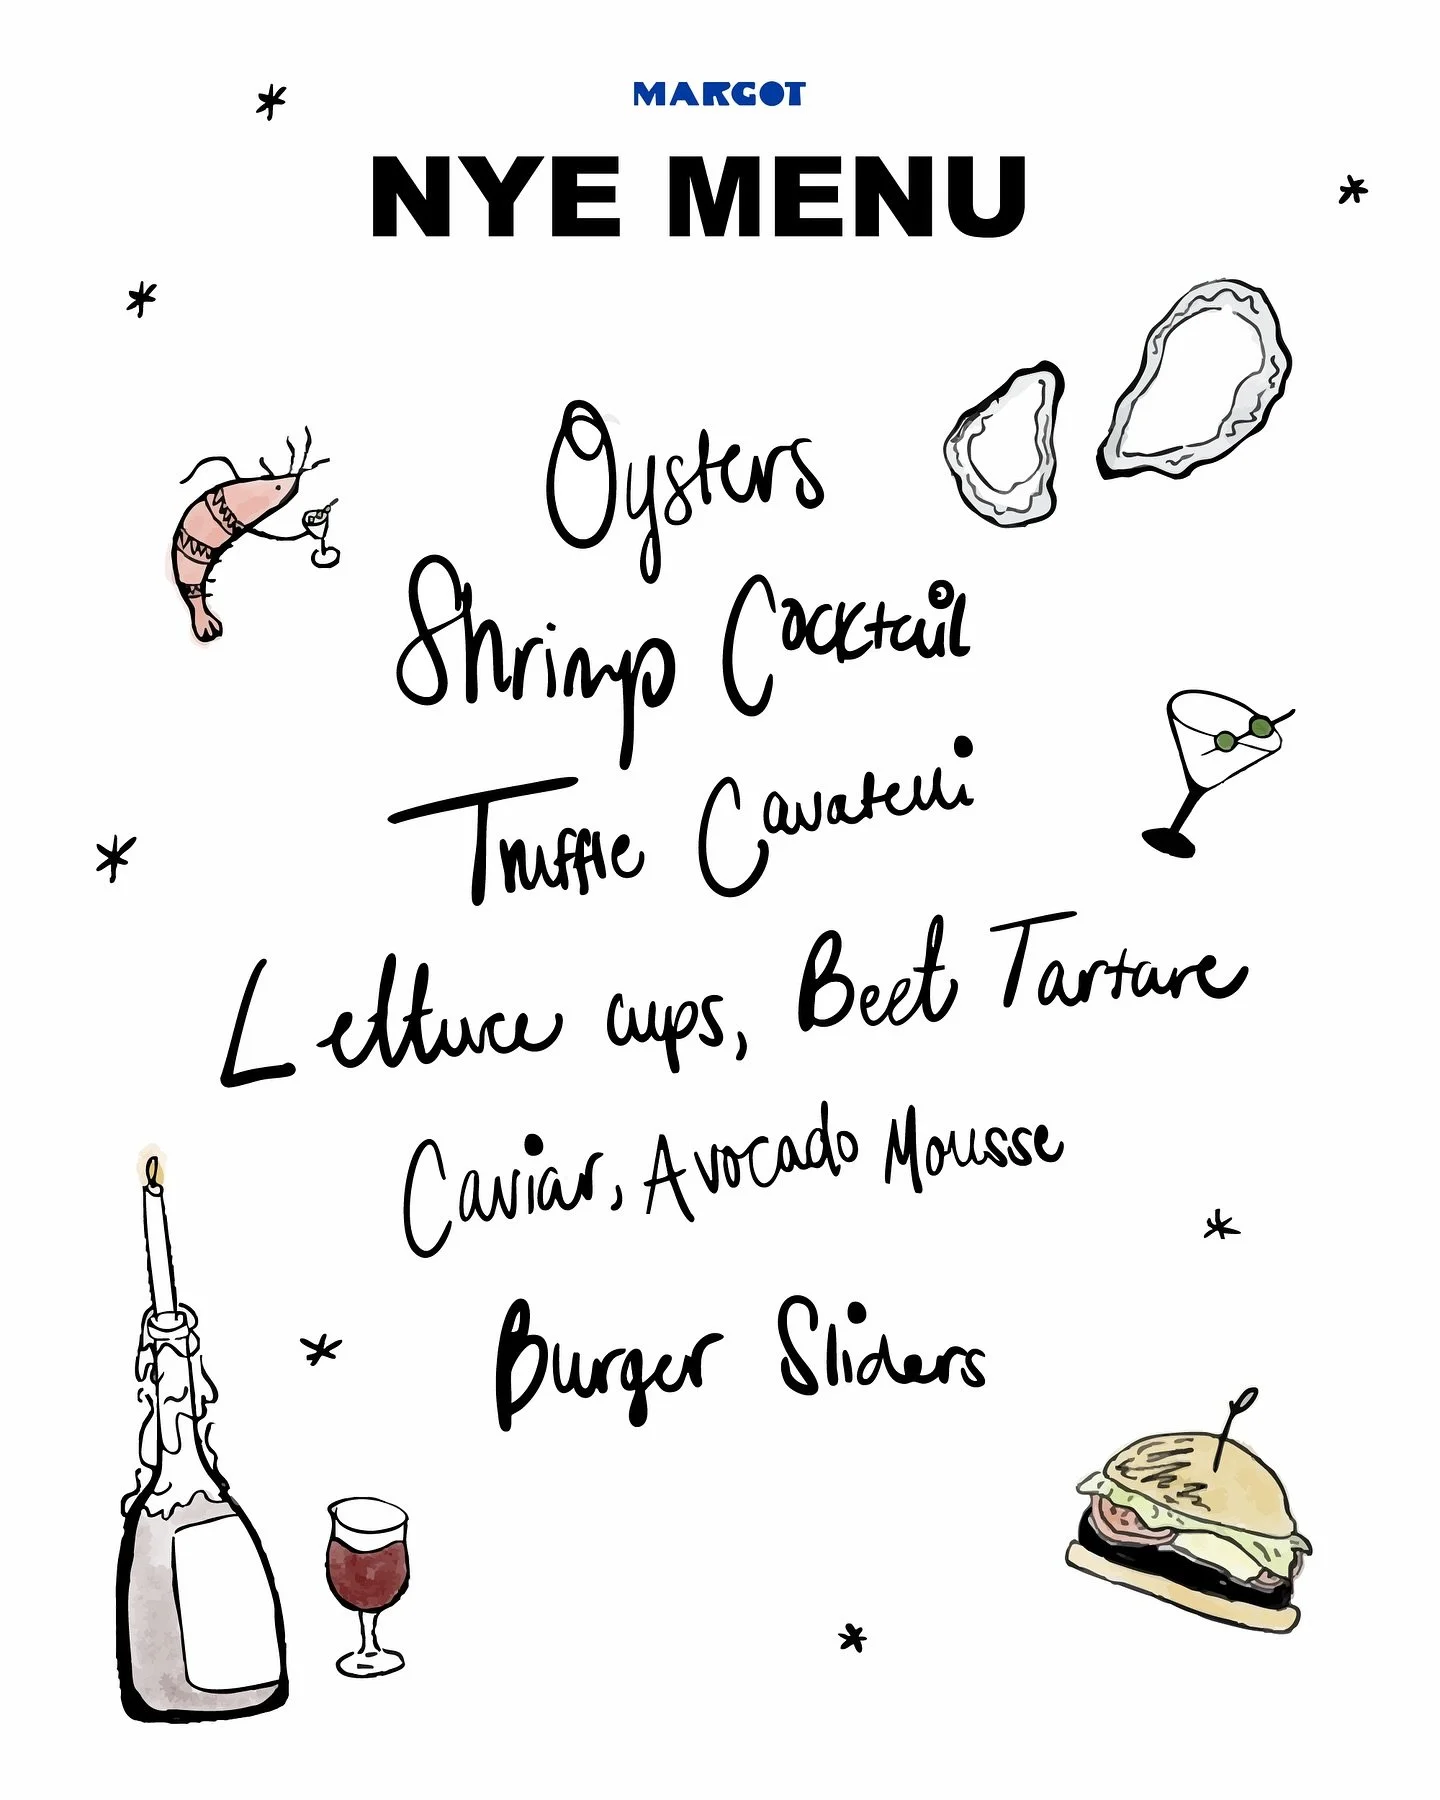 MARGOT
NYE MENU
Oysters
Shrimp Cocktail
Truffle Cavatelli
Lettuce cups, Beet Tartare
Caviar, Avocado Mousse
Burger Sliders